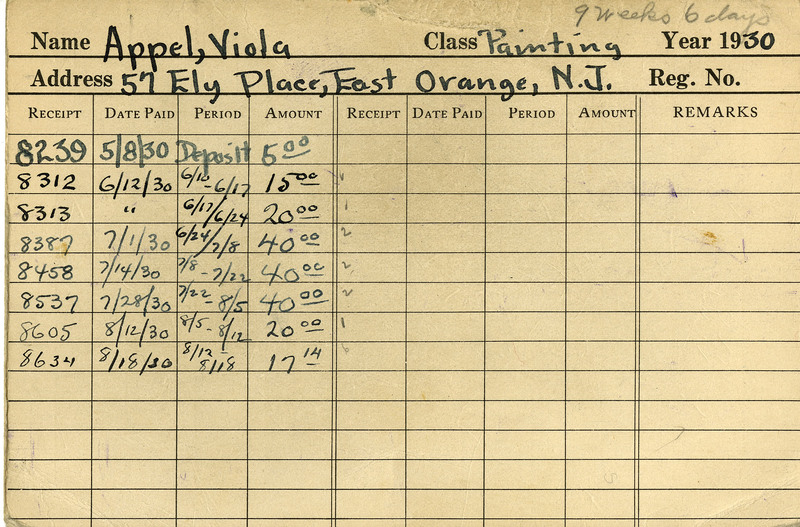 9 weeks 6 days
Name Appel, Viola Class Painting Year 1930
Address 57 Ely Place, East Orange, N.J. Reg. No.
RECEIPT DATE PAID PERIOD AMOUNT RECEIPT DATE PAID PERIOD AMOUNT REMARKS
8239 5/8/30 Deposit 5 00
8312 6/12/30 6/10-6/17 15 00 1
8313 " 6/17/6/24 20 00 1
8387 7/1/30 6/24/7/8 40 00 2
8458 7/14/30 7/8-7/22 40 00 2
8537 7/28/30 7/22-8/5 40 00 2
8605 8/12/30 8/5-8/12 20 00 1
8634 8/18/30 8/12-8/18 17 14 6